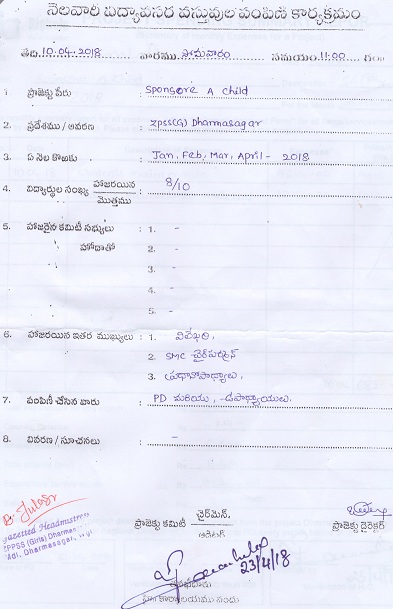 నెలవారి విద్యావసర వస్తువుల పంపిణి కార్యక్రమం
తేది.10.04-2018 వారము సోమవారం సమయం.11:00
1 ప్రాజెక్టు పేరు : Sponsore A child
2. ప్రదేశము / ఆవరణ : ZPSS(G) Dharmasagar
3. ఏ నెల కొఱకు : Jan, Feb, Mar, April - 2018
4. విద్యార్థుల సంఖ్య హాజరయిన / మొత్తము : 8/10
5. హాజరైన కమిటీ సభ్యులు : 1. -
హోదాతో 2. -
3. -
4. -
5. -
6. హాజరయిన ఇతర ముఖ్యులు : 1.
2. SMC చైర్‌పర్సన్
3. ప్రధానోపాధ్యాయులు,
7. పంపిణీ చేసిన వారు : PD మరియు, ఉపాధ్యాయులు.
8. వివరణ / సూచనలు : -
Gazetted Headmistress
ZPPSS (Girls) Dharmasagar
Dharmasagar,
ప్రాజెక్టు కమిటీ చైర్మెన్. ప్రాజెక్టు డైరెక్టర్
ఆడిటర్
23/4/18